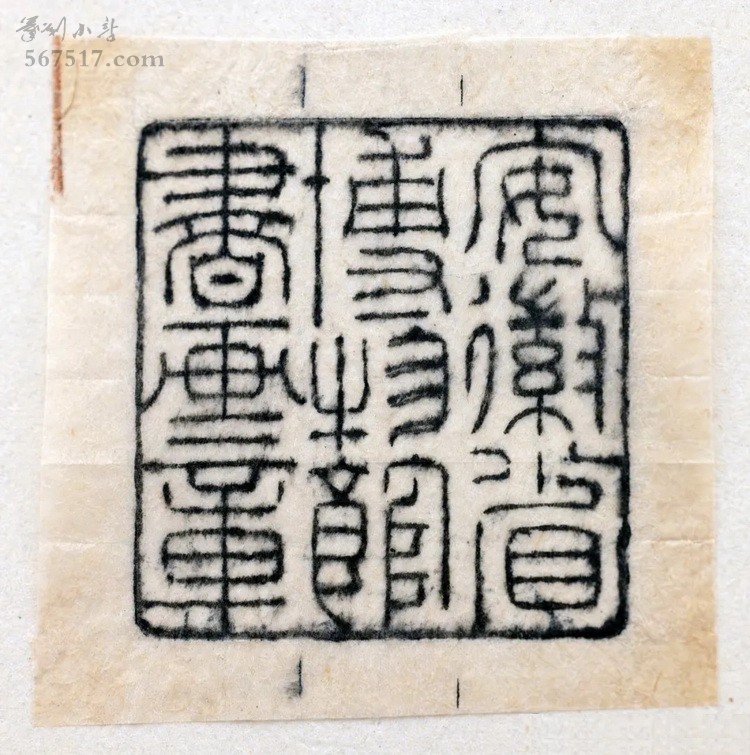 567517.com
安徽省
博物館
書畫章